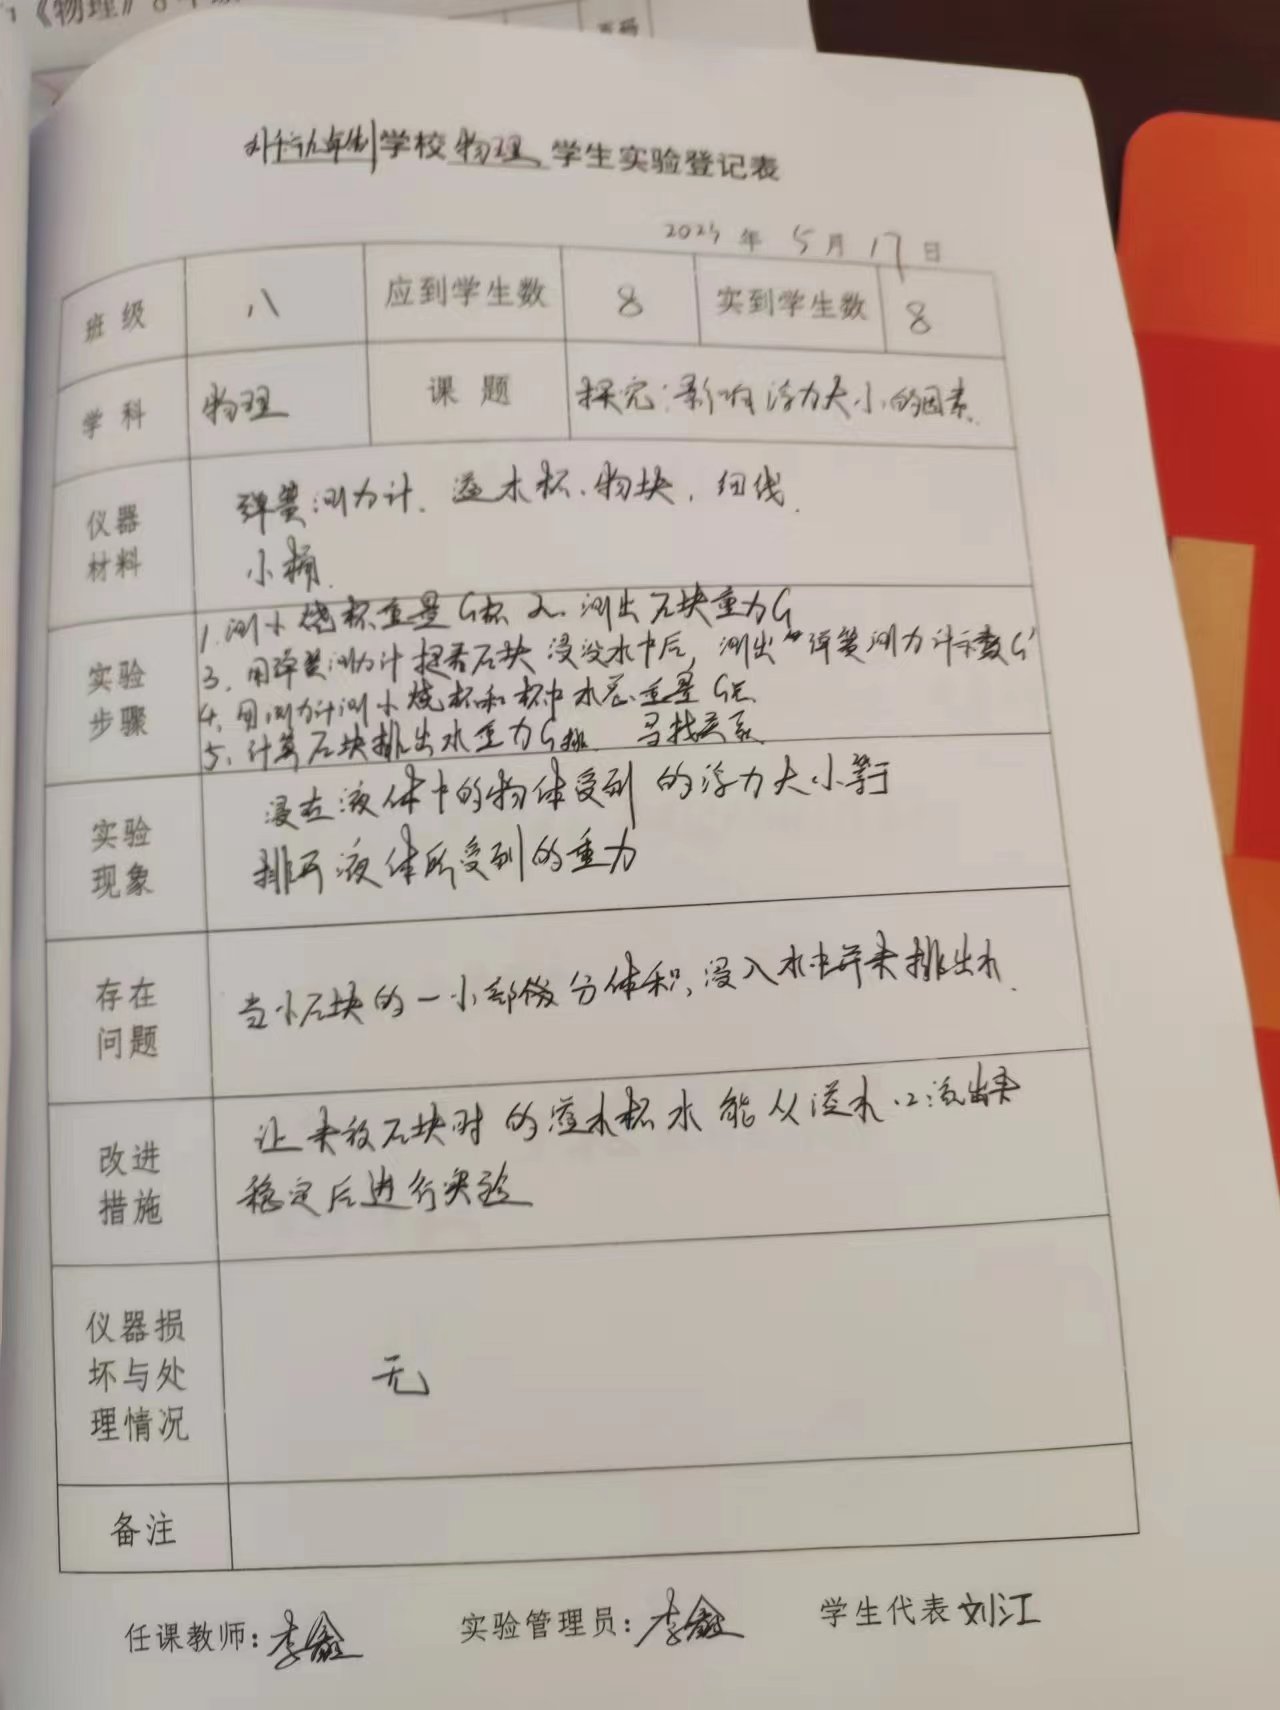 《物理》8年
学校 物理 学生实验登记表
2023年 5月 17日
班级 八 应到学生数 8 实到学生数 8
学科 物理 课题 探究:影响浮力大小的因素.
仪器材料 弹簧测力计. 溢水杯. 物块. 细线.
小桶.
实验步骤 1. 测小烧杯重量G杯 2. 测出石块重力G
3. 用弹簧测力计提着石块 浸没水中后, 测出弹簧测力计示数G'
4. 用测力计测小烧杯和杯中水总重量G总
5. 计算石块排出水重力G排. 寻找关系
实验现象 浸在液体中的物体受到的浮力大小等于
排开液体所受到的重力
存在问题 当小石块的一小部分体积,浸入水中并未排出水.
改进措施 让未放石块时的溢水杯水能从溢水口流出来
稳定后进行实验
仪器损坏与处理情况 无
备注
任课教师: 李鑫 实验管理员: 李鑫 学生代表 刘江